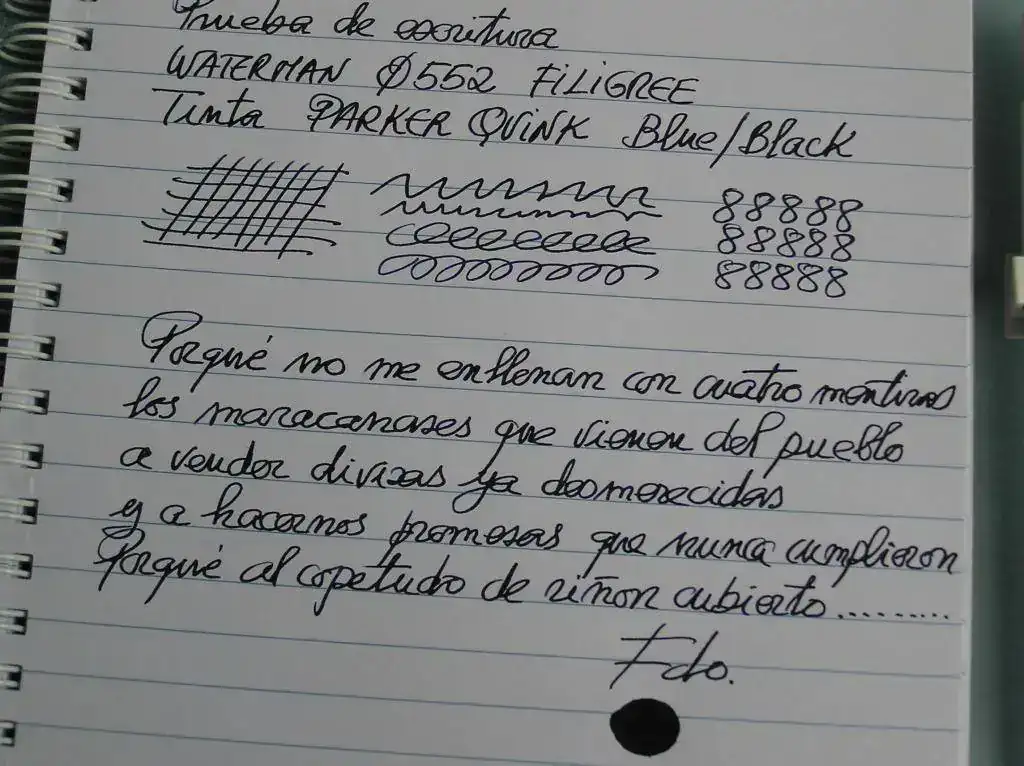 Prueba de escritura
WATERMAN 0552 FILIGREE
Tinta PARKER QUINK Blue/Black
88888
88888
88888
Porqué no me enllenan con cuatro mentiras
los maracanases que vienen del pueblo
a vender divisas ya desmerecidas
y a hacernos promesas que nunca cumplieron
Porqué al copetudo de riñon cubierto.........
Fdo.